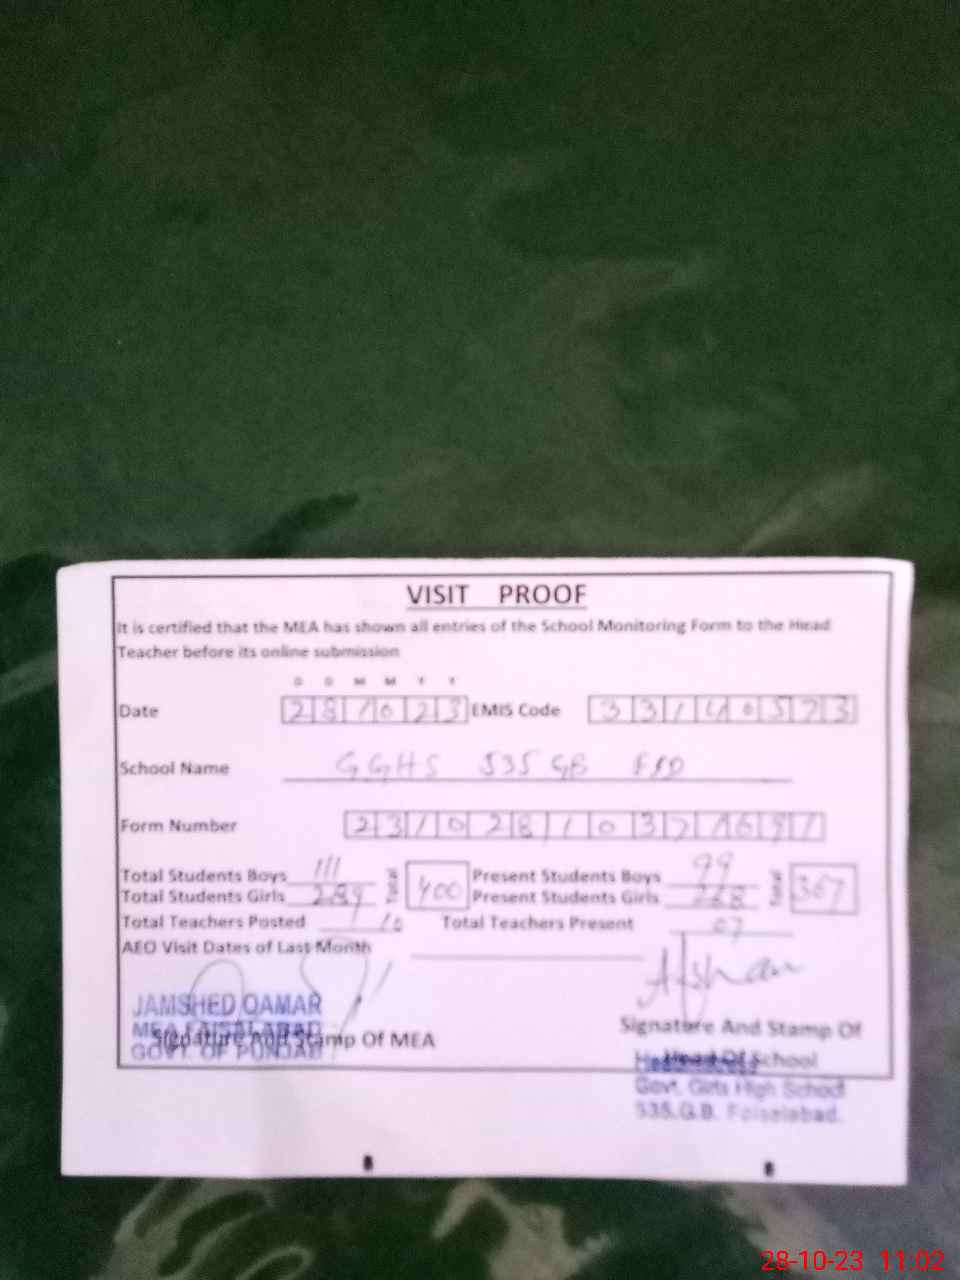 VISIT PROOF
It is certified that the MEA has shown all entries of the School Monitoring Form to the Head
Teacher before its online submission
D D M M Y Y
Date 281023 EMIS Code 33140573
School Name GGHS 535 GB FSD
Form Number 23102810371691
Total Students Boys 111 Total 400 Present Students Boys 99 Total 367
Total Students Girls 289 Present Students Girls 268
Total Teachers Posted 10 Total Teachers Present 07
AEO Visit Dates of Last Month
Afshan
JAMSHED QAMAR
MEA FAISALABAD
GOVT. OF PUNJAB
Signature And Stamp Of MEA
Signature And Stamp Of
Head Of School
Headmistress
Govt. Girls High School
535.G.B. Faisalabad.
28-10-23 11:02